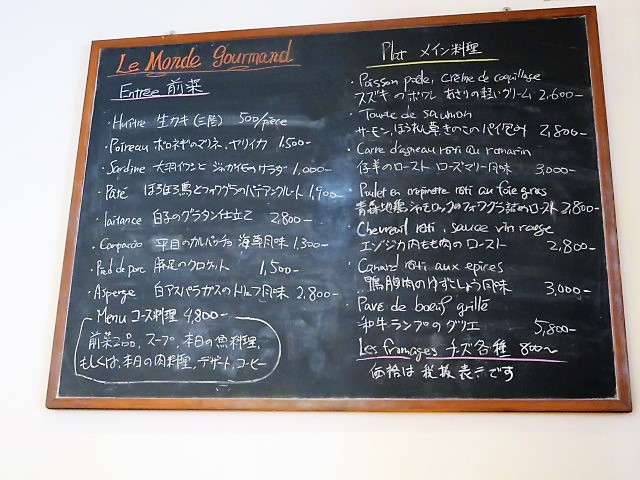 Le Monde Gourmand
Entrée 前菜
・Huître 生カキ(三陸) 500/piece
・Poireau ポロネギのマリネ、ヤリイカ 1,500-
・Sardine 大羽イワシと ジャガイモのサラダ 1,000-
・Pâté ほろほろ鳥とフォワグラのパテアンクルート 1,900-
・laitance 白子のグラタン仕立て 2,800-
・Carpaccio 平目のカルパッチョ 海草風味 1,300-
・Pied de porc 豚足のクロケット 1,500-
・Asperge 白アスパラガスのトリュフ風味 2,800-
Menu コース料理 4,800-
前菜2品、スープ、本日の魚料理、
もしくは、本日の肉料理、デザート、コーヒー
Plat メイン料理
・Poisson poêle, crème de coquillage
スズキのポワレ あさりの軽いクリーム 2,600-
・Tourte de saumon
サーモン、ほうれん草ときのこのパイ包み 2,800-
・Carre d'agneau roti au romarin
仔羊のロースト ローズマリー風味 3,000-
・Poulet en crepinette roti au foie gras
青森地鶏シャモロックのフォワグラ詰めロースト 2,800-
・Chevreuil roti, sauce vin rouge
エゾシカ内もも肉のロースト 2,800-
・Canard roti aux epices
鴨胸肉の けずこしょう風味 3,000-
・Pave de boeuf grillé
和牛ランプのグリエ 5,800-
Les fromages チーズ各種 800~
価格は税抜表示です